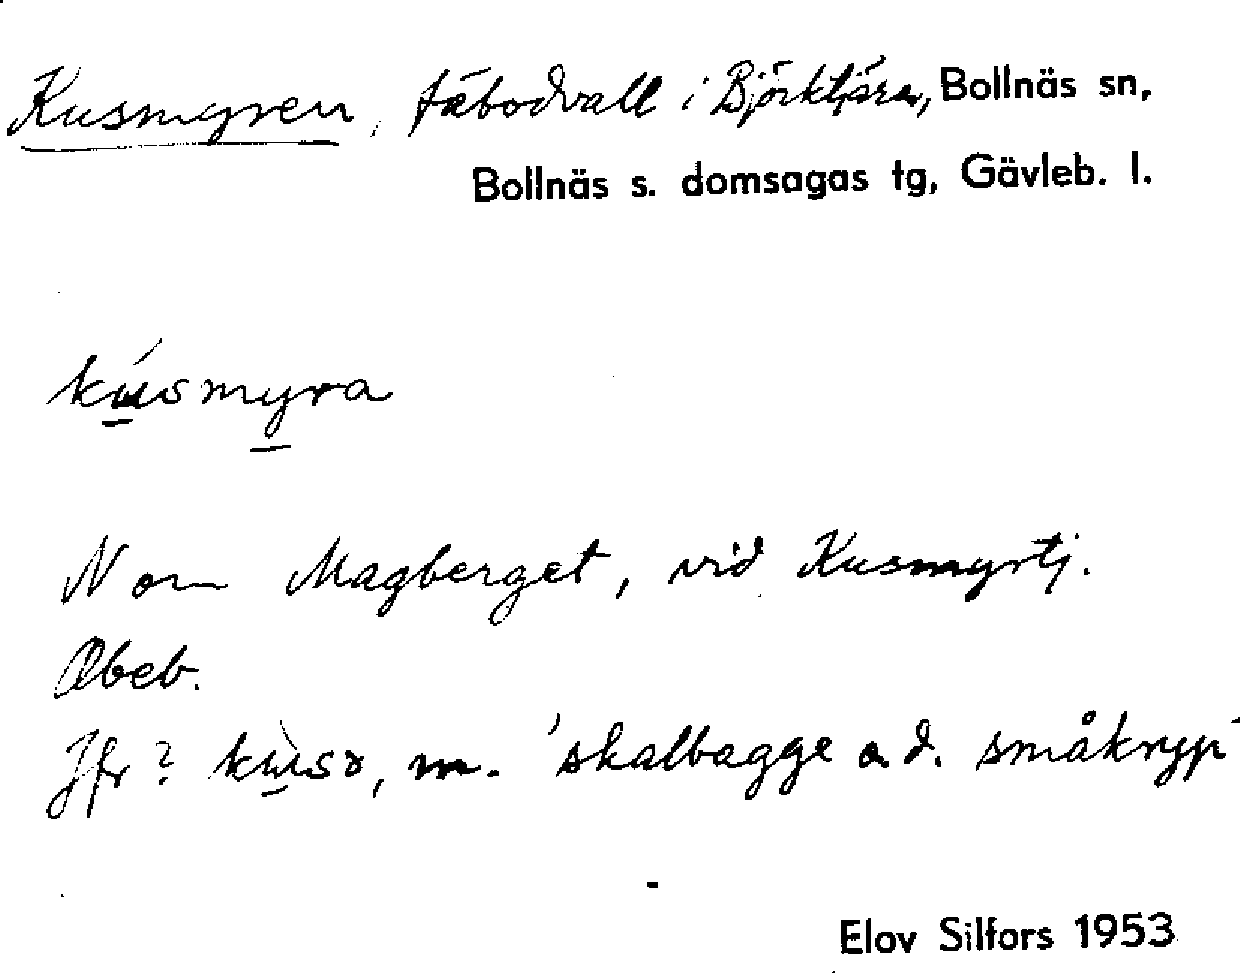 Kusmyren, fäbodvall i Björktjära, Bollnäs sn,
Bollnäs s. domsagas tg, Gävleb. l.
kúsmyra
N om Magberget, vid Kusmyrtj.
Obeb.
Jfr ? kùsə, m. 'skalbagge o.d. småkryp'
Elov Silfors 1953